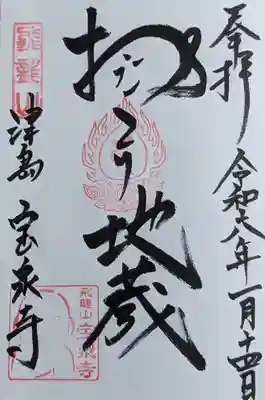 奉拝 令和六年一月十四日
おこり地蔵
津島 宝泉寺
飛龍山
宝泉寺